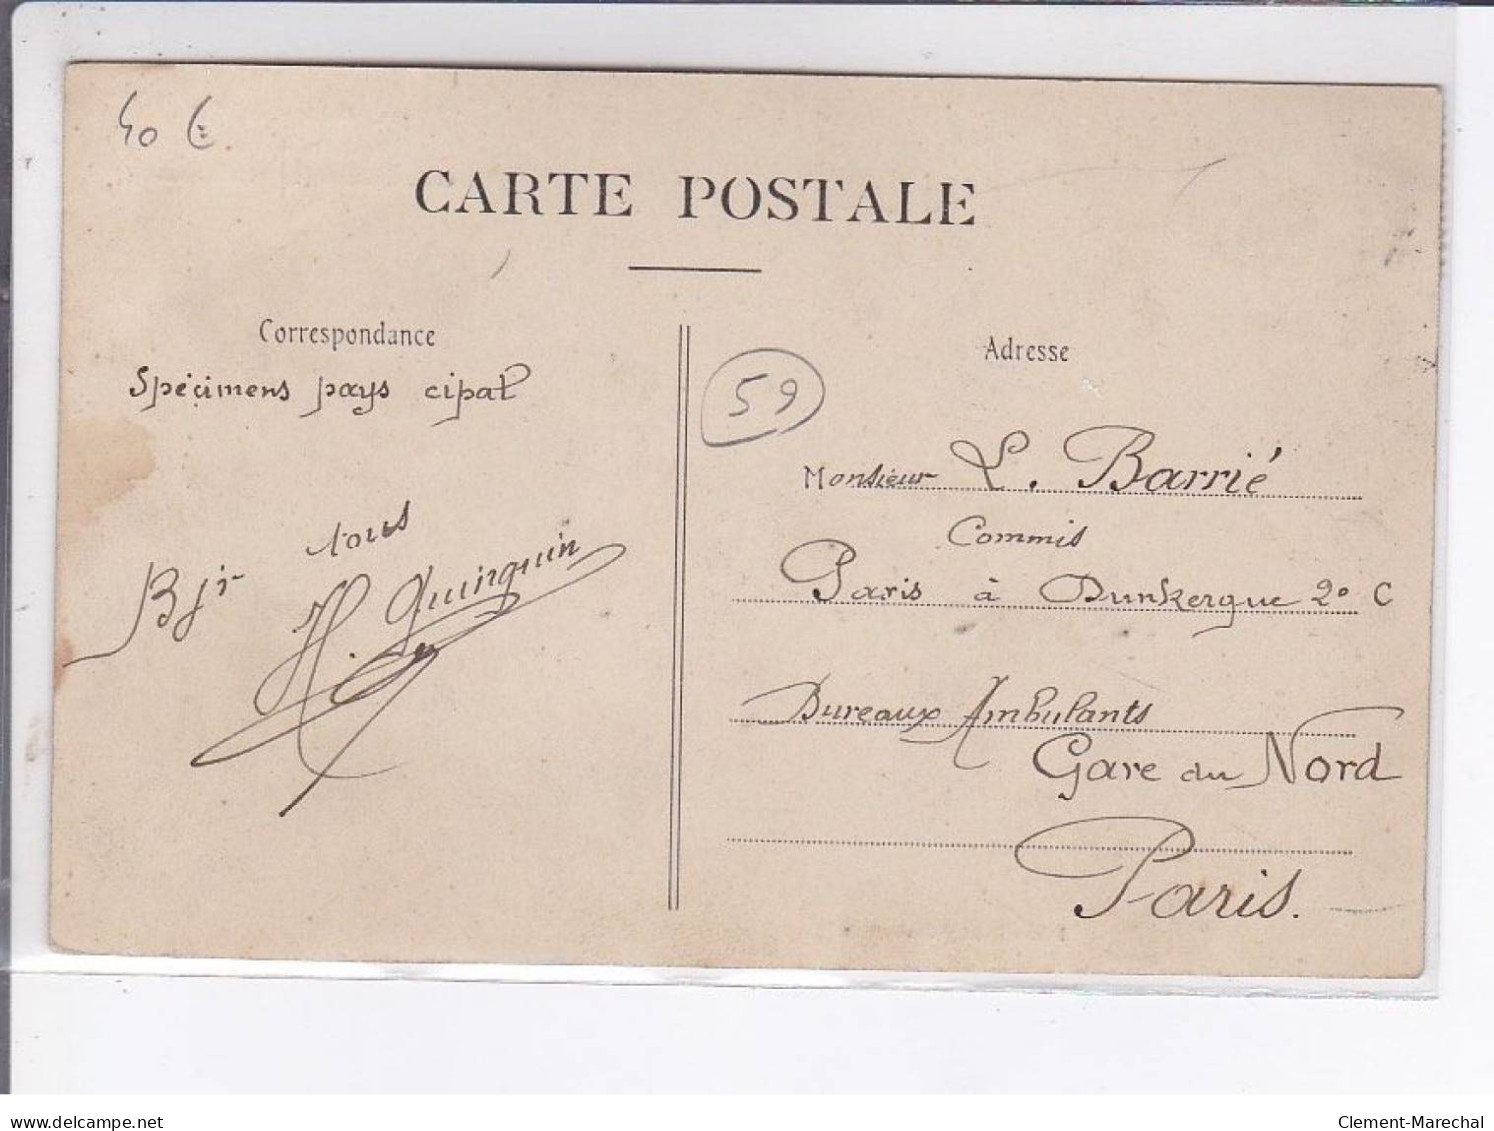 40 €
CARTE POSTALE
Correspondance
Spécimens pays cipal
Bjr tous
H. Quinquin
59
Adresse
Monsieur L. Barrié
Commis
Paris à Dunkerque 2° C
Bureaux Ambulants
Gare du Nord
Paris.
delcampe.net
Clement-Marechal